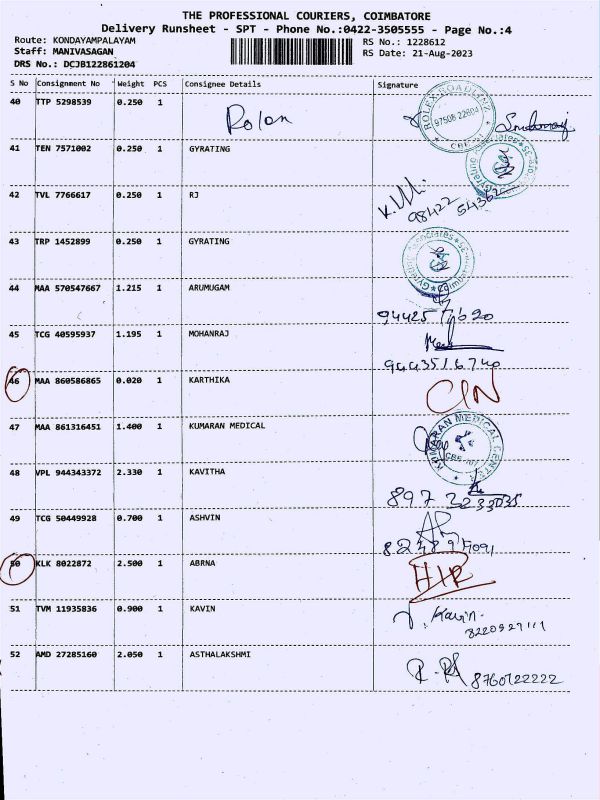 THE PROFESSIONAL COURIERS, COIMBATORE
Delivery Runsheet - SPT - Phone No.:0422-3505555 - Page No.:4
Route: KONDAYAMPALAYAM RS No.: 1228612
Staff: MANIVASAGAN RS Date: 21-Aug-2023
DRS No.: DCJB122861204
S No Consignment No Weight PCS Consignee Details Signature
40 TTP 5298539 0.250 1 Rolon ROLEX ROADLINZ 97508 22604
41 TEN 7571002 0.250 1 GYRATING
42 TVL 7766617 0.250 1 RJ 98422 54362
43 TRP 1452899 0.250 1 GYRATING
44 MAA 570547667 1.215 1 ARUMUGAM
94425
45 TCG 40595937 1.195 1 MOHANRAJ
9443516740
46 MAA 860586865 0.020 1 KARTHIKA CIN
47 MAA 861316451 1.400 1 KUMARAN MEDICAL KUMARAN MEDICAL CENTRE
48 VPL 944343372 2.330 1 KAVITHA
897
49 TCG 50449928 0.700 1 ASHVIN
50 KLK 8022872 2.500 1 ABRNA
51 TVM 11935836 0.900 1 KAVIN Kavin.
52 AMD 27285160 2.050 1 ASTHALAKSHMI
8760722222